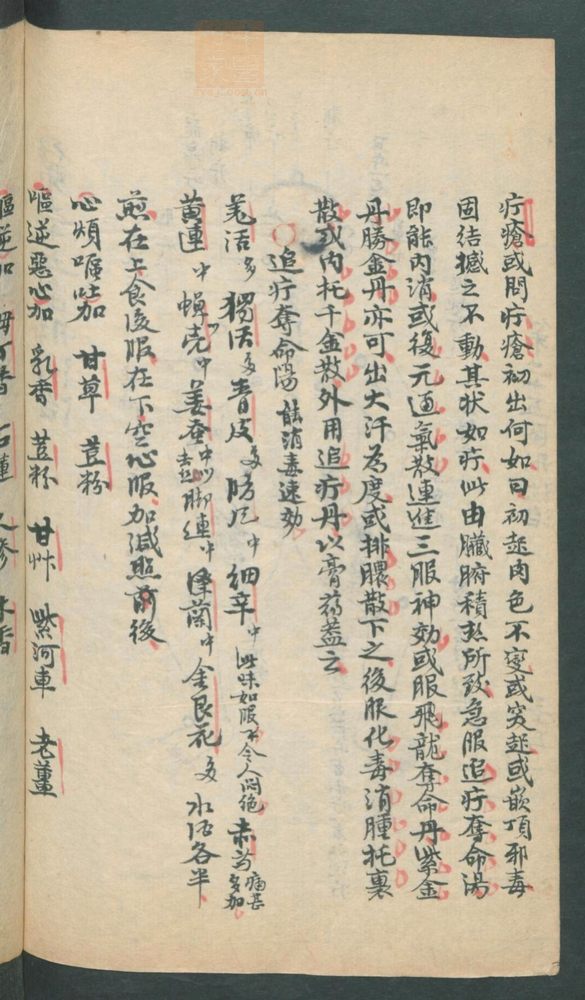 疔瘡或問疔瘡初出何如曰初起肉色不变或突起或嵌頂邪毒
固结撼之不動其状如疔此由臟腑積热所致急服追疔夺命湯
即能内消或復元通氣散連進三服神効或服飛龍夺命丹紫金
丹勝金丹亦可出大汗為度或排膿散下之後服化毒消腫托裏
散或内托千金散外用追疔丹以膏药盖之
追疔夺命湯 能消毒速効
羌活多 獨活多 青皮多 防风中 細辛中 此味如服不令人闷绝 赤芍 痛甚多加
黄連中 蟬壳中 姜蚕中 脚連中 澤蘭中 金艮花多 水酒各半
煎在上食後服在下空心服加减照前後
心煩嘔加 甘草 荳粉
嘔逆惡心加 乳香 荳粉 甘艸 紫河車 老薑
嘔逆加 丁香 石蓮 人參 木香